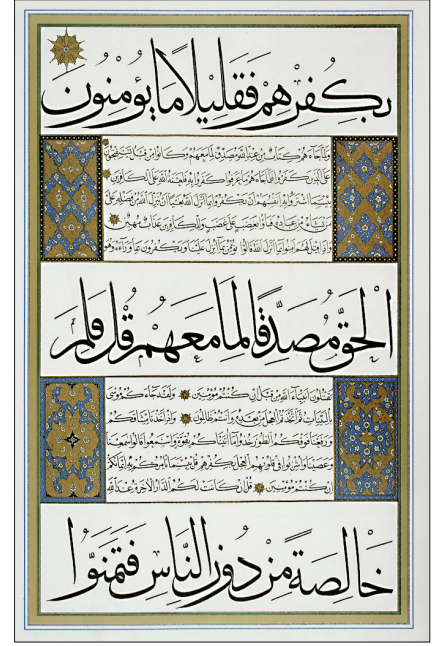 بِكُفْرِهِمْ فَقَلِيلًا مَا يُؤْمِنُونَ
وَلَمَّا جَاءَهُمْ كِتَابٌ مِنْ عِنْدِ اللَّهِ مُصَدِّقٌ لِمَا مَعَهُمْ وَكَانُوا مِنْ قَبْلُ يَسْتَفْتِحُونَ
عَلَى الَّذِينَ كَفَرُوا فَلَمَّا جَاءَهُمْ مَا عَرَفُوا كَفَرُوا بِهِ فَلَعْنَةُ اللَّهِ عَلَى الْكَافِرِينَ
بِئْسَمَا اشْتَرَوْا بِهِ أَنْفُسَهُمْ أَنْ يَكْفُرُوا بِمَا أَنْزَلَ اللَّهُ بَغْيًا أَنْ يُنَزِّلَ اللَّهُ مِنْ فَضْلِهِ عَلَى
مَنْ يَشَاءُ مِنْ عِبَادِهِ فَبَاءُوا بِغَضَبٍ عَلَى غَضَبٍ وَلِلْكَافِرِينَ عَذَابٌ مُهِينٌ
وَإِذَا قِيلَ لَهُمْ آمِنُوا بِمَا أَنْزَلَ اللَّهُ قَالُوا نُؤْمِنُ بِمَا أُنْزِلَ عَلَيْنَا وَيَكْفُرُونَ بِمَا وَرَاءَهُ وَهُوَ
الْحَقُّ مُصَدِّقًا لِمَا مَعَهُمْ قُلْ فَلِمَ
تَقْتُلُونَ أَنْبِيَاءَ اللَّهِ مِنْ قَبْلُ إِنْ كُنْتُمْ مُؤْمِنِينَ وَلَقَدْ جَاءَكُمْ مُوسَى
بِالْبَيِّنَاتِ ثُمَّ اتَّخَذْتُمُ الْعِجْلَ مِنْ بَعْدِهِ وَأَنْتُمْ ظَالِمُونَ وَإِذْ أَخَذْنَا مِيثَاقَكُمْ
وَرَفَعْنَا فَوْقَكُمُ الطُّورَ خُذُوا مَا آتَيْنَاكُمْ بِقُوَّةٍ وَاسْمَعُوا قَالُوا سَمِعْنَا
وَعَصَيْنَا وَأُشْرِبُوا فِي قُلُوبِهِمُ الْعِجْلَ بِكُفْرِهِمْ قُلْ بِئْسَمَا يَأْمُرُكُمْ بِهِ إِيمَانُكُمْ
إِنْ كُنْتُمْ مُؤْمِنِينَ قُلْ إِنْ كَانَتْ لَكُمُ الدَّارُ الْآخِرَةُ عِنْدَ اللَّهِ
خَالِصَةً مِنْ دُونِ النَّاسِ فَتَمَنَّوُا